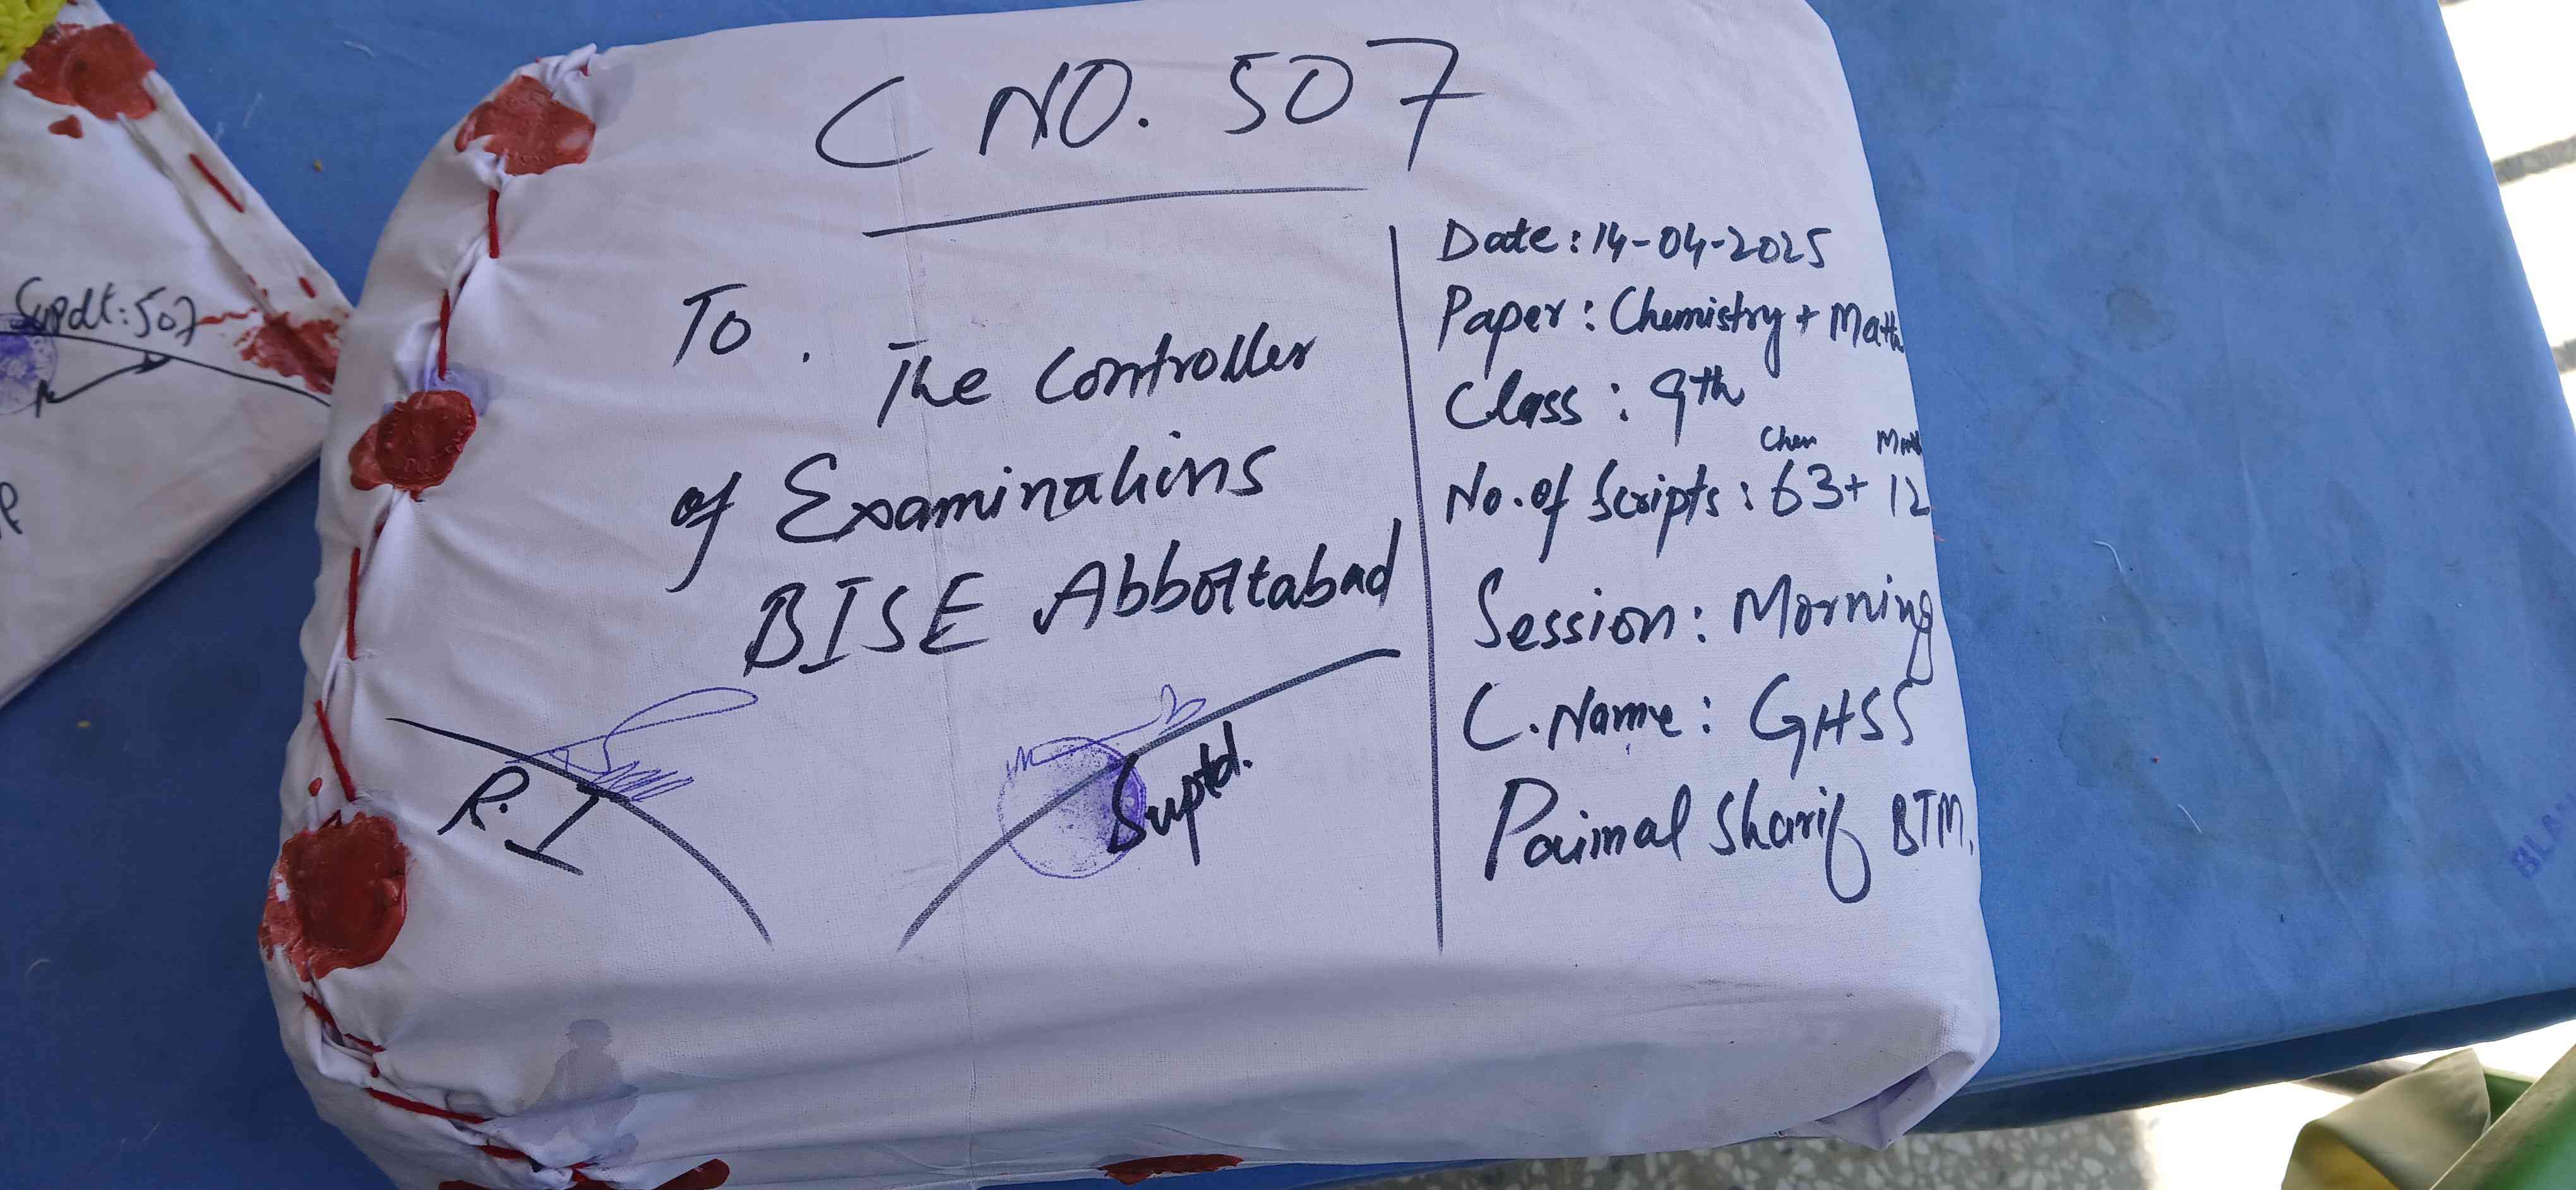 C NO. 507
To.
The Controller
of Examinations
BISE Abbottabad
R.I
Suptd.
Date: 14-04-2025
Paper: Chemistry + Math
Class: 9th
Chem Math
No. of Scripts: 63+ 12
Session: Morning
C. Name: GHSS
Paimal Sharif BTM.
Supdt: 507